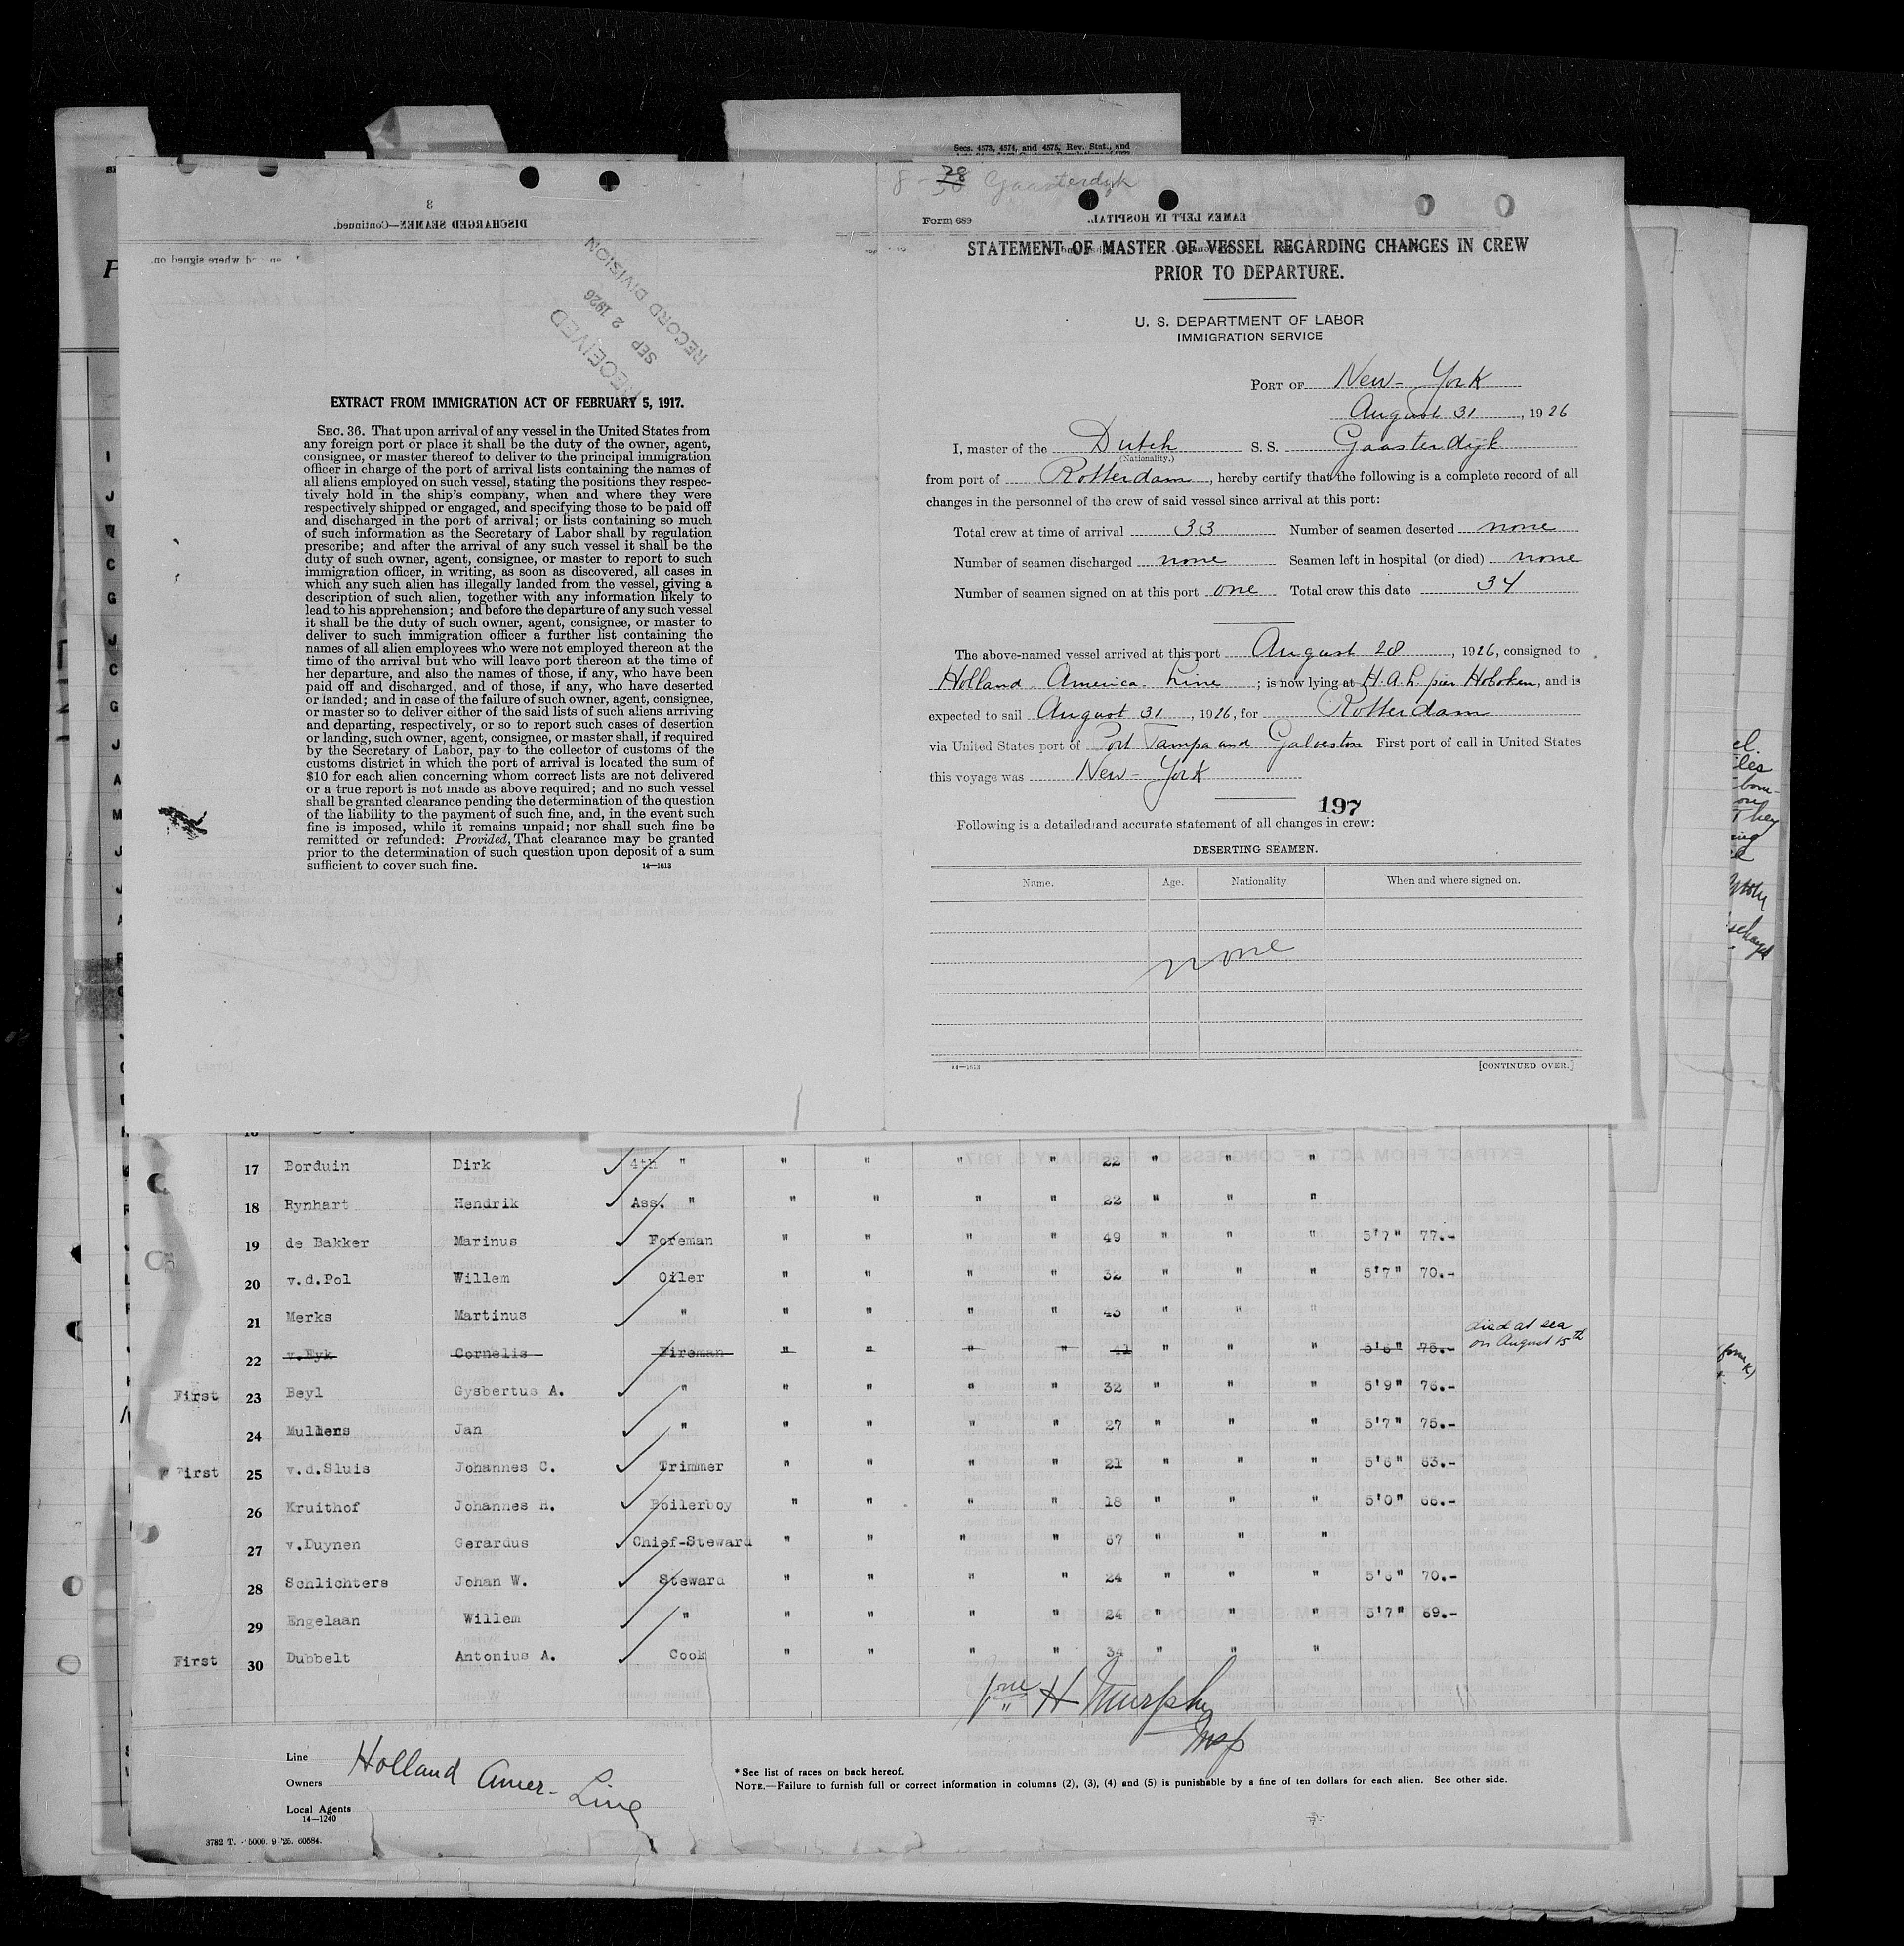 Secs. 4573, 4574, and 4575, Rev. Stat., and
8
DISCHARGED SEAMEN—Continued.
RECEIVED
SEP 2 1926
RECORD DIVISION
EXTRACT FROM IMMIGRATION ACT OF FEBRUARY 5, 1917.
SEC. 36. That upon arrival of any vessel in the United States from
any foreign port or place it shall be the duty of the owner, agent,
consignee, or master thereof to deliver to the principal immigration
officer in charge of the port of arrival lists containing the names of
all aliens employed on such vessel, stating the positions they respec-
tively hold in the ship's company, when and where they were
respectively shipped or engaged, and specifying those to be paid off
and discharged in the port of arrival; or lists containing so much
of such information as the Secretary of Labor shall by regulation
prescribe; and after the arrival of any such vessel it shall be the
duty of such owner, agent, consignee, or master to report to such
immigration officer, in writing, as soon as discovered, all cases in
which any such alien has illegally landed from the vessel, giving a
description of such alien, together with any information likely to
lead to his apprehension; and before the departure of any such vessel
it shall be the duty of such owner, agent, consignee, or master to
deliver to such immigration officer a further list containing the
names of all alien employees who were not employed thereon at the
time of the arrival but who will leave port thereon at the time of
her departure, and also the names of those, if any, who have been
paid off and discharged, and of those, if any, who have deserted
or landed; and in case of the failure of such owner, agent, consignee,
or master so to deliver either of the said lists of such aliens arriving
and departing, respectively, or so to report such cases of desertion
or landing, such owner, agent, consignee, or master shall, if required
by the Secretary of Labor, pay to the collector of customs of the
customs district in which the port of arrival is located the sum of
$10 for each alien concerning whom correct lists are not delivered
or a true report is not made as above required; and no such vessel
shall be granted clearance pending the determination of the question
of the liability to the payment of such fine, and, in the event such
fine is imposed, while it remains unpaid; nor shall such fine be
remitted or refunded: Provided, That clearance may be granted
prior to the determination of such question upon deposit of a sum
sufficient to cover such fine. 14—1613
8 - 28 Gaasterdyk
Form 689
SEAMEN LEFT IN HOSPITAL.
STATEMENT OF MASTER OF VESSEL REGARDING CHANGES IN CREW
PRIOR TO DEPARTURE.
U. S. DEPARTMENT OF LABOR
IMMIGRATION SERVICE
PORT OF New-York
August 31, 1926
I, master of the Dutch S. S. Gaasterdyk
(Nationality.)
from port of Rotterdam, hereby certify that the following is a complete record of all
changes in the personnel of the crew of said vessel since arrival at this port:
Total crew at time of arrival 33 Number of seamen deserted none
Number of seamen discharged none Seamen left in hospital (or died) none
Number of seamen signed on at this port one Total crew this date 34
The above-named vessel arrived at this port August 28, 1926, consigned to
Holland-America-Line; is now lying at H.A.L. pier Hoboken, and is
expected to sail August 31, 1926, for Rotterdam
via United States port of Port Tampa and Galveston First port of call in United States
this voyage was New-York
197
Following is a detailed and accurate statement of all changes in crew:
DESERTING SEAMEN.
Name. Age. Nationality When and where signed on.
none
14—1613 [CONTINUED OVER.]
17 Borduin Dirk 4th " " " " " 22 " " "
18 Rynhart Hendrik Ass. " " " " " 22 " " "
19 de Bakker Marinus Foreman " " " " 49 " " " 5'7" 77.-
20 v.d.Pol Willem Oiler " " " " 32 " " " 5'7" 70.-
21 Merks Martinus " " " " " 43 " " "
22 v.Eyk Cornelis Fireman " " " " 41 " " " 5'6" 75.- died at sea on August 15th
First 23 Beyl Gysbertus A. " " " " " 32 " " " 5'9" 76.-
24 Mullens Jan " " " " " 27 " " " 5'7" 75.-
First 25 v.d.Sluis Johannes C. Trimmer " " " " 21 " " " 5'6" 63.-
26 Kruithof Johannes H. Boilerboy " " " " 18 " " " 5'0" 66.-
27 v.Duynen Gerardus Chief-Steward " " " " 67 " " "
28 Schlichters Johan W. Steward " " " " 24 " " " 5'6" 70.-
29 Engelaan Willem " " " " " 24 " " " 5'7" 69.-
First 30 Dubbelt Antonius A. Cook " " " " 34 " " "
H Murphy
Insp
Line Holland Amer- Line
Owners
Local Agents
14—1240
* See list of races on back hereof.
NOTE.—Failure to furnish full or correct information in columns (2), (3), (4) and (5) is punishable by a fine of ten dollars for each alien. See other side.
3782 T. - 5000. 9-'25. 60584.